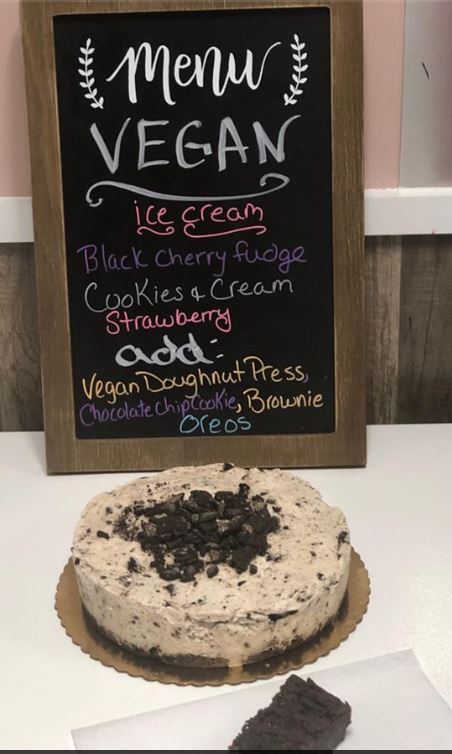 Menu
VEGAN
ice cream
Black cherry fudge
Cookies & Cream
Strawberry
add:
Vegan Doughnut Press,
Chocolate chip Cookie, Brownie
Oreos